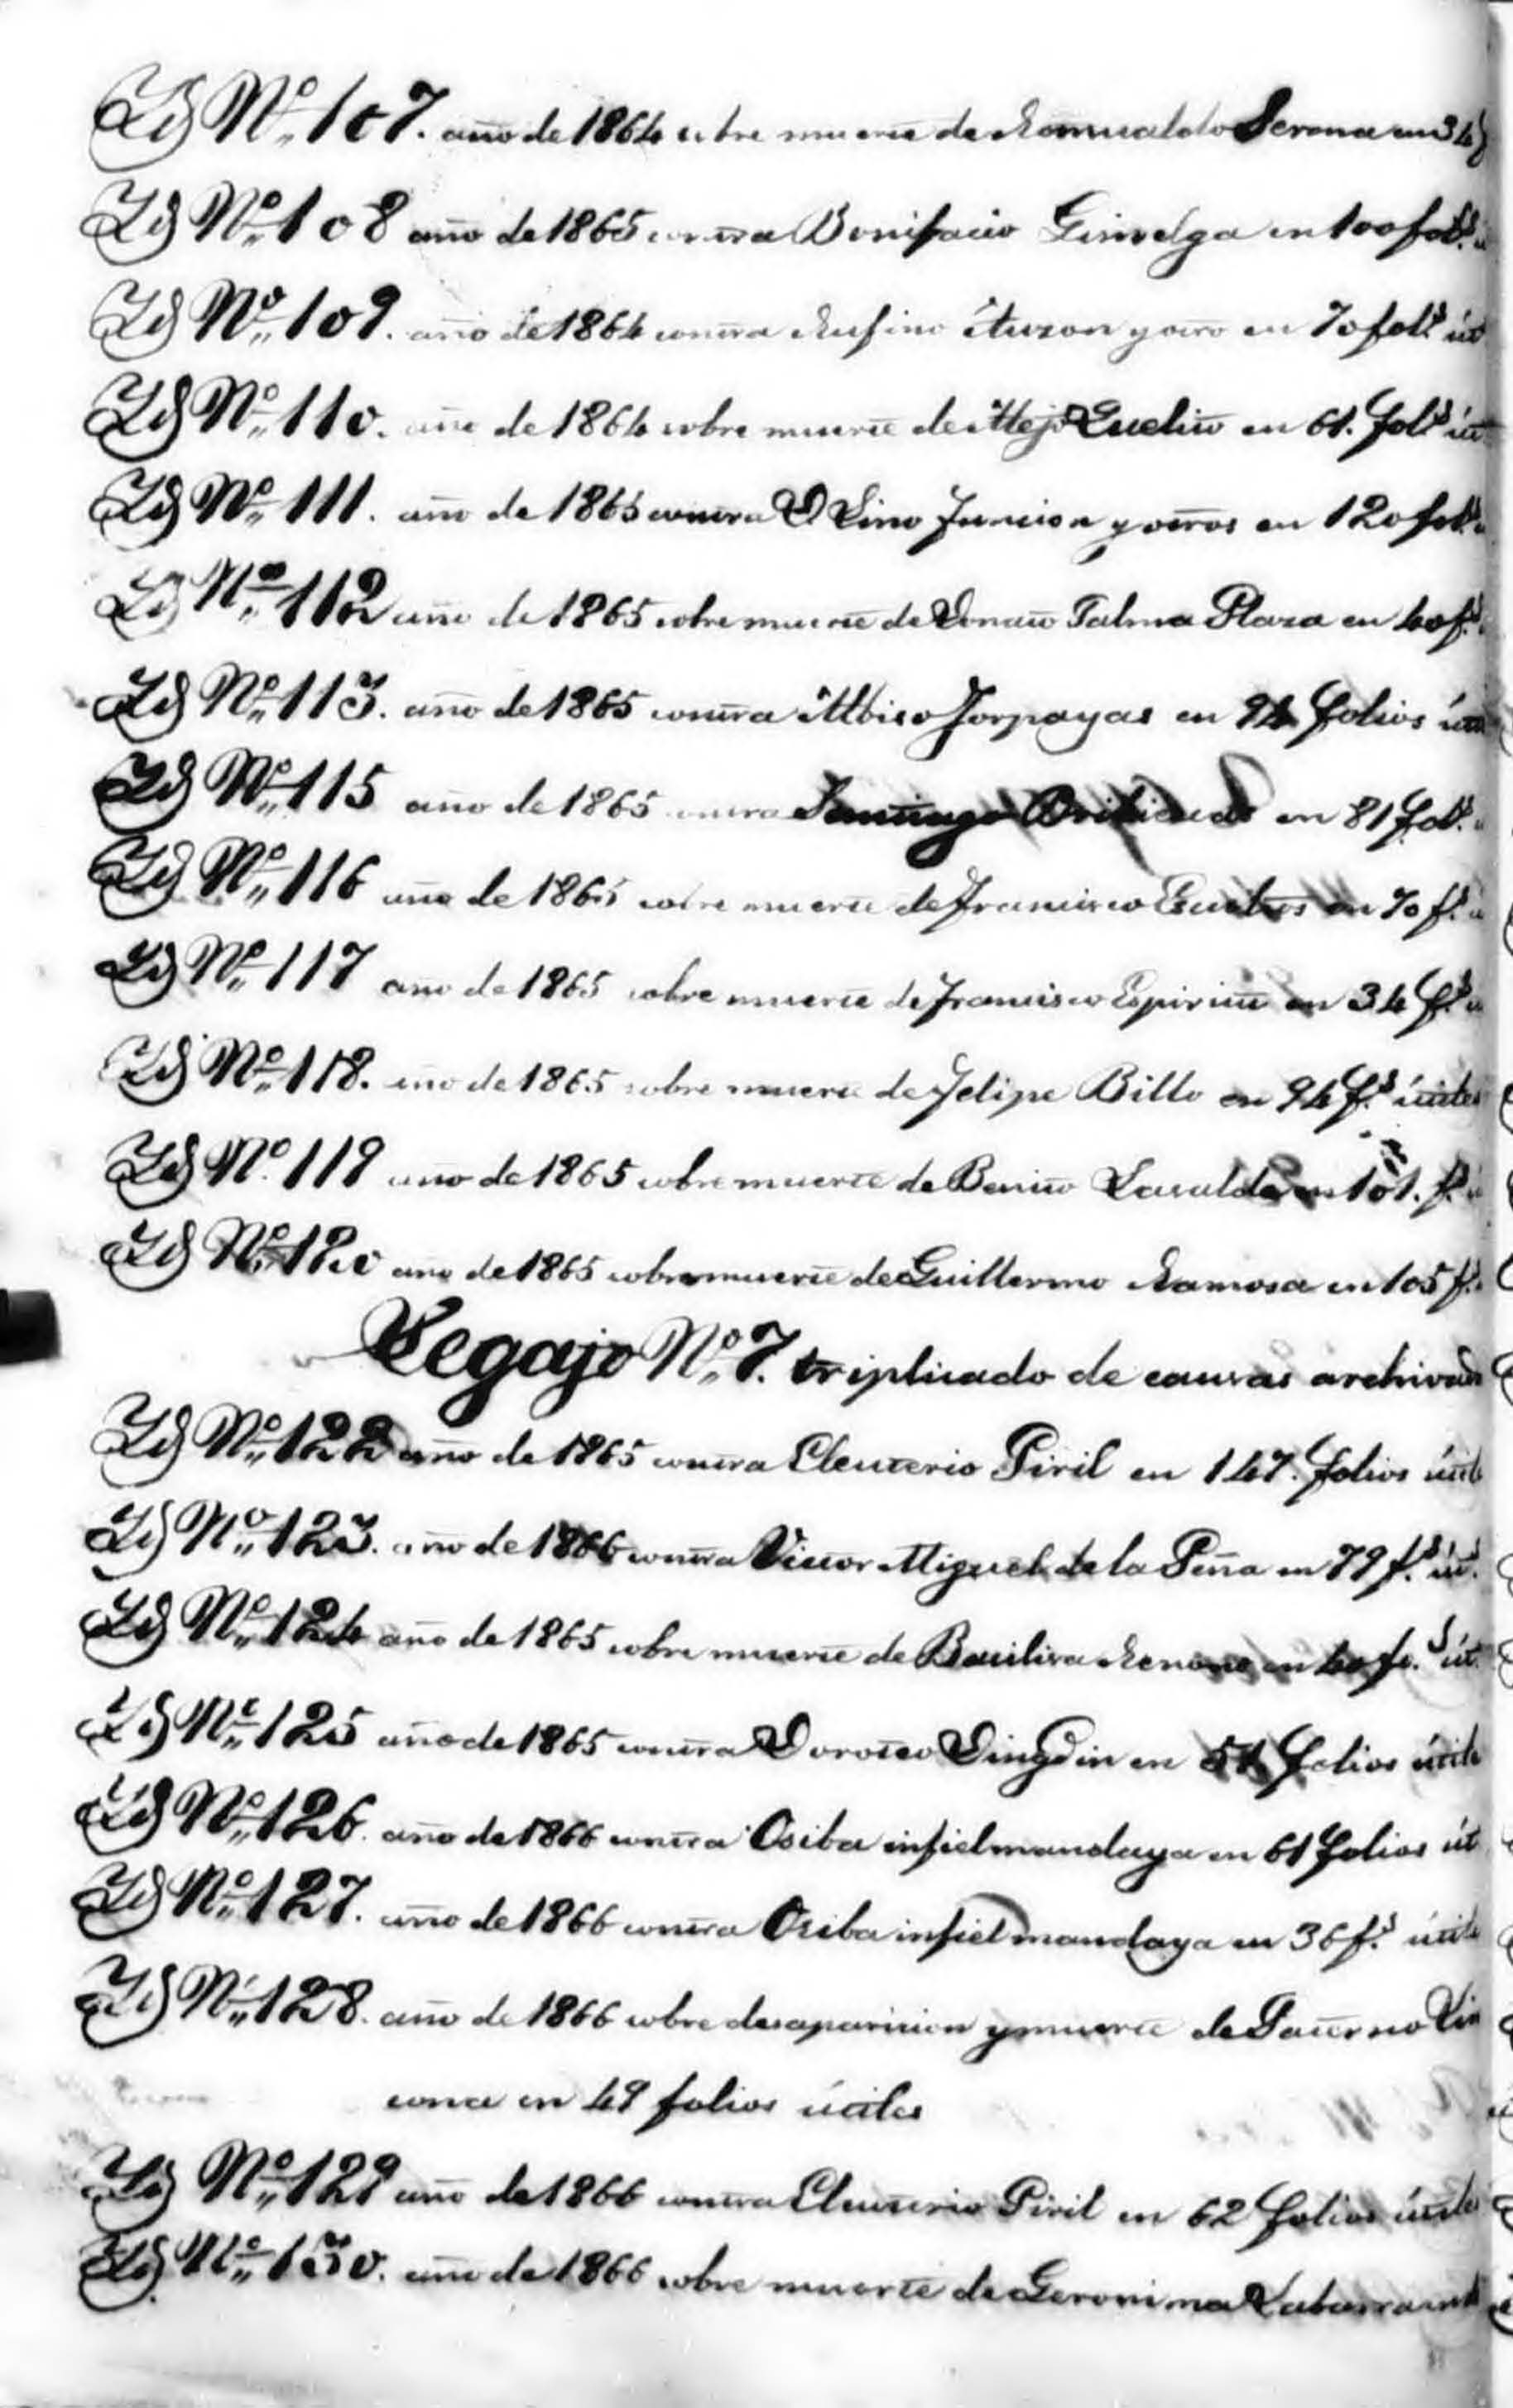 Id Nº 107. año de 1864 sobre muerte de Romualdo Serona en 34
Id Nº 108 año de 1865 contra Bonifacio en 100 fol.s
Id Nº 109. año de 1864 contra Rufino y otro en 70 fol.s út
Id Nº 110. año de 1864 sobre muerte de en 61. fol.s út
Id Nº 111. año de 1865 contra D Lino y otros en 120 fol.s
Id Nº 112 año de 1865 sobre muerte de Donato Palma Plaza en 40 f.s
Id Nº 113. año de 1865 contra en 94 folios úti
Id Nº 115 año de 1865 contra Santiago en 81 fol.s
Id Nº 116 año de 1865 sobre muerte de Francisco en 70 f.s
Id Nº 117 año de 1865 sobre muerte de Francisco Espiritu en 34 f.s
Id Nº 118. año de 1865 sobre muerte de Felipe Billo en 94 f.s útiles
Id Nº 119 año de 1865 sobre muerte de Benito en 101. f.s
Id Nº 120 año de 1865 sobre muerte de Guillermo Ramosa en 105 f.s
Legajo Nº 7. triplicado de causas archivad
Id Nº 122 año de 1865 contra Eleuterio Piril en 147. folios útile
Id Nº 123. año de 1866 contra Victor Miguel de la Peña en 79 f.s út.
Id Nº 124 año de 1865 sobre muerte de Basilisa en 40 fo.s út.
Id Nº 125 año de 1865 contra Doroteo en 54 folios útile
Id Nº 126. año de 1866 contra Osiba infiel mandaya en 61 folios út
Id Nº 127. año de 1866 contra Osiba infiel mandaya en 36 f.s útile
Id Nº 128. año de 1866 sobre desaparicion y muerte de Paterno Lin
cona en 49 folios útiles
Id Nº 129 año de 1866 contra Eleuterio Piril en 62 folios útile
Id Nº 130. año de 1866 sobre muerte de Geronima